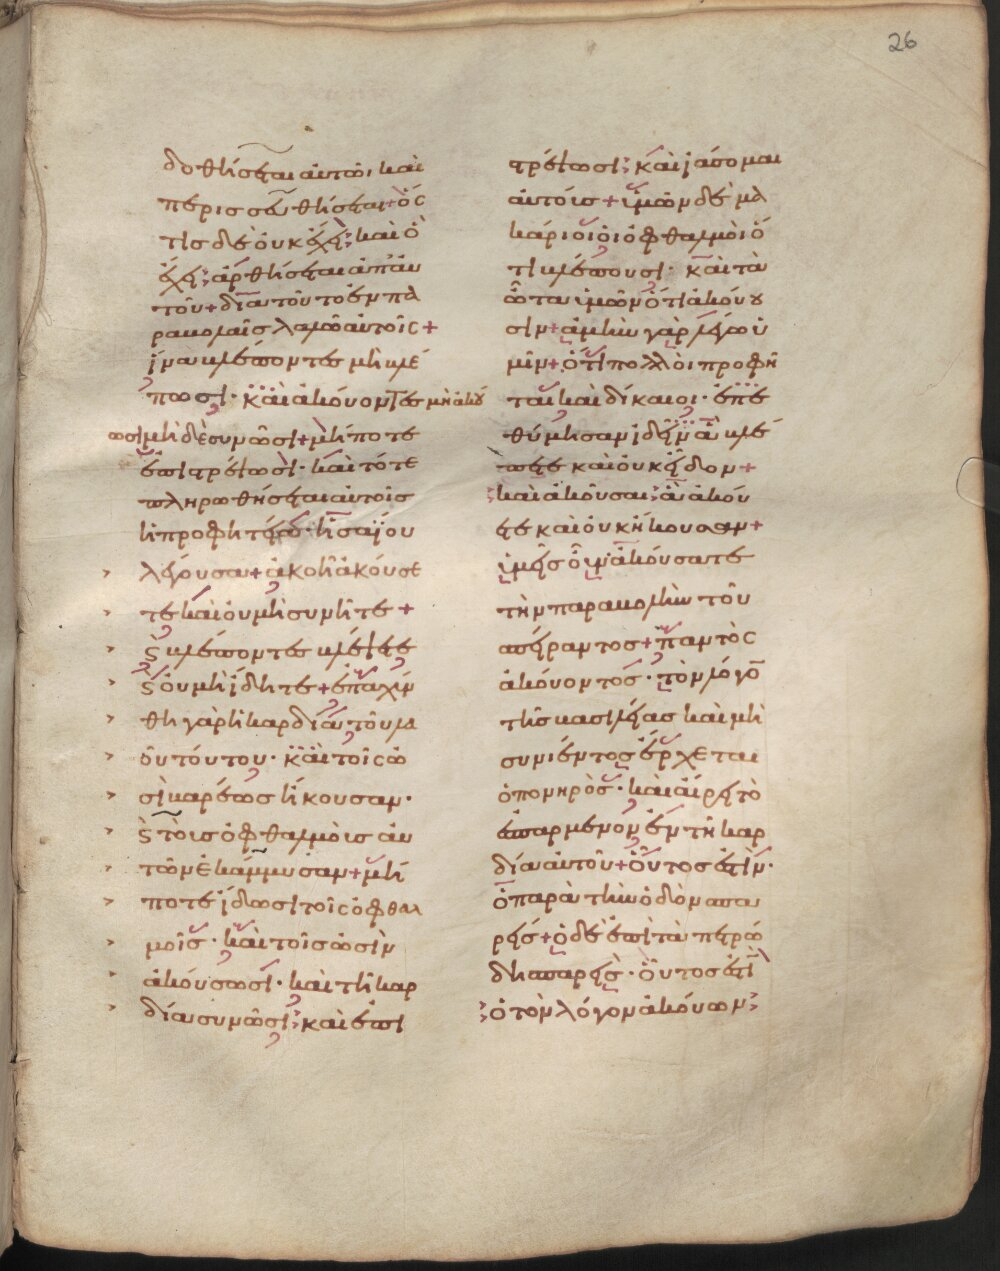 26
δοθήσεται αυτῶ, καὶ
περισσευθήσεται + ὅς
τις δὲ οὐκ ἔχει, καὶ ὃ
ἔχει, ἀρθήσεται ἀπ' αυ
τοῦ + διατοῦτο ἐν πα
ραβολαῖς λαλῶ αυτοῖς +
ἵνα βλέποντες μὴ βλέ
πωσι · καὶ ἀκούοντες μὴ ἀκού
ωσι μὴ δὲ συνῶσι + μήποτε
ἐπιτρέψωσι · καὶ τότε
πληρωθήσεται αυτοῖς
ἡ προφητεία ἡσαΐου
λέγουσα + ἀκοῆ ἀκούσε
τε καὶ οὐ μὴ συνῆτε +
ϛ βλέποντες βλέψετε
ϛ οὐ μὴ ἴδητε + ἐπαχύν
θη γὰρ ἡ καρδία τοῦ λα
οῦ τούτου · καὶ τοῖς ὠ
σὶ βαρέως ἤκουσαν ·
ϛ τοῖς ὀφθαλμοὶς αυ
τῶν ἐκάμμυσαν + μή
ποτε ἴδωσι τοῖς ὀφθαλ
μοῖς · καὶ τοῖς ὠσὶν
ἀκούσωσι · καὶ τῆ καρ
δία συνῶσι, καὶ ἐπι
τρέψωσι, καὶ ἰάσομαι
αὐτοὶς + ὑμῶν δὲ μα
κάριοι οἱ ὀφθαλμοὶ ὅ
τι βλέπουσι · καὶ τὰ
ὦτα ὑμῶν ὅτι ἀκούου
σιν + ἀμὴν γὰρ λέγω ὑ
μῖν + ὅτι πολλοὶ προφῆ
ται καὶ δίκαιοι · ἐπε
θύμησαν ἰδεῖν ἃ βλέ
πετε καὶ οὐκ εἶδον +
καὶ ἀκοῦσαι, ἃ ἀκού
ετε καὶ οὐκ ἤκουσαν +
ὑμεῖς οὖν ἀκούσατε
τὴν παραβολὴν τοῦ
σπείραντος + παντὸς
ἀκούοντος · τὸν λόγον
τῆς βασιλείας καὶ μὴ
συνιέντος ἔρχεται
ὁ πονηρὸς · καὶ αἴρει τὸ
ἐσπαρμένον ἐν τῆ καρ
δία αυτοῦ + οὗτος ἐστὶν ·
ὁ παρὰ τὴν ὁδὸν σπα
ρείς + ὁ δὲ ἐπὶ τὰ πετρώ
δη σπαρεὶς · οὗτος ἐστὶ
ὁ τὸν λόγον ἀκούων,